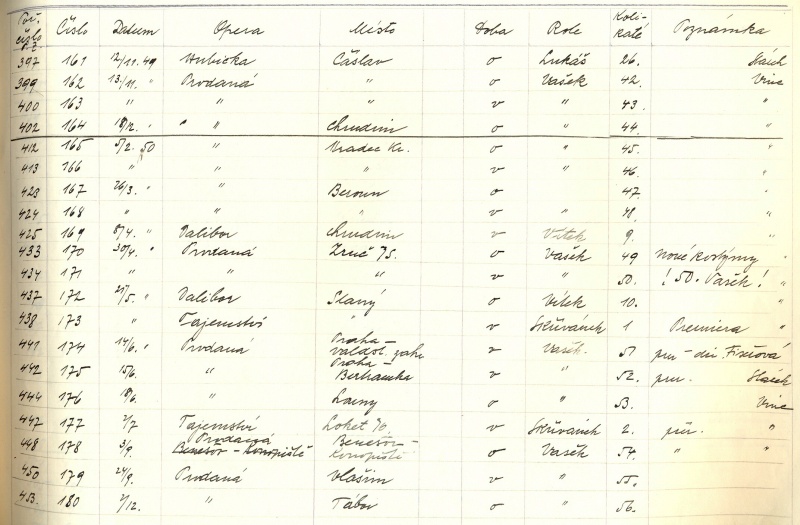 Poř. číslo Číslo Datum Opera Místo Doba Role Kolikáté Poznámka
397 161 12/11. 49 Hubička Čáslav o Lukáš 26.
399 162 13/11. " Prodaná " o Vašek 42. Vinc
400 163 " " " v " 43. "
402 164 " " Chrudim o " 44. "
412 165 5/2. 50 " Hradec Kr. o " 45. "
413 166 " " v " 46. "
423 167 26/3. " " Beroun o 47. "
424 168 " " " v " 48. "
425 169 8/4. " Dalibor Chrudim v Vítek 9. "
433 170 30/4. " Prodaná Zruč n/S. o Vašek 49 nové kostýmy "
434 171 " " " v " 50. ! 50. Vašek ! "
437 172 21/5. " Dalibor Slaný o Vítek 10. "
438 173 " Tajemství " v Skřivánek 1 Premiera "
441 174 14/6. " Prodaná Praha – Valdšt. zahr. v Vašek. 51
442 175 15/6. " Praha – Bertramka v " 52. Hášek
444 176 18/6. " Louny o " 53. Vinc
447 177 2/7 Tajemství Loket v Skřivánek 2. "
448 178 3/9. Prodaná Benešov – Konopiště Benešov – Konopiště o Vašek 54. " "
450 179 24/9. Prodaná Vlašim v " 55.
453. 180 2/12. " Tábor o " 56.